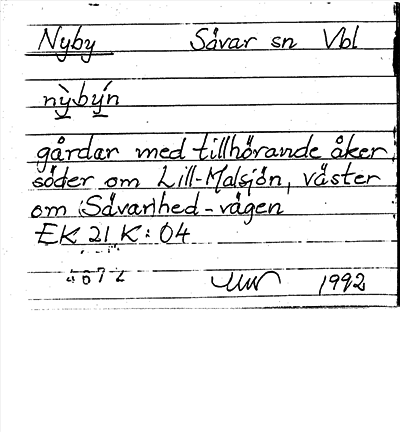 Nyby Sävar sn Vbl
nỳbýn
gårdar med tillhörande åker,
söder om Lill-Malsjön, väster
om Sävar/hed-vägen
EK 21 K: 04
4072 1992